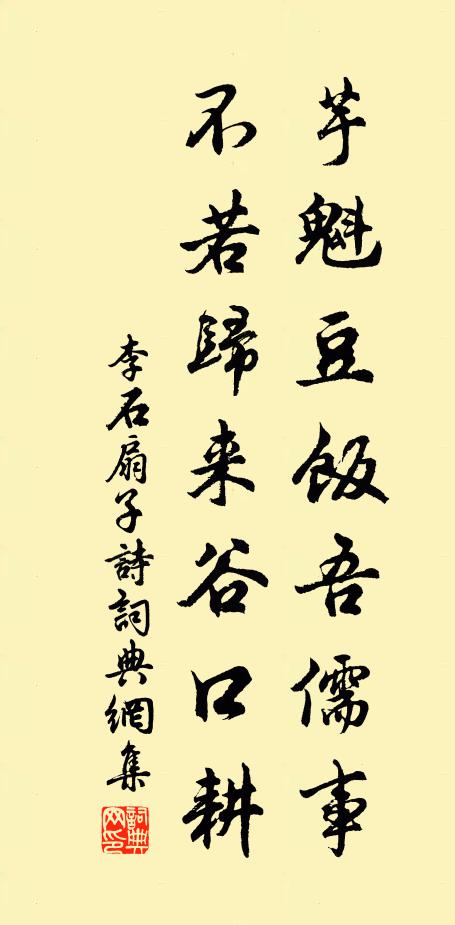 芋魁豆飯吾儒事
不若歸来谷口耕
李石扇子詩詞典網集
詞典网印